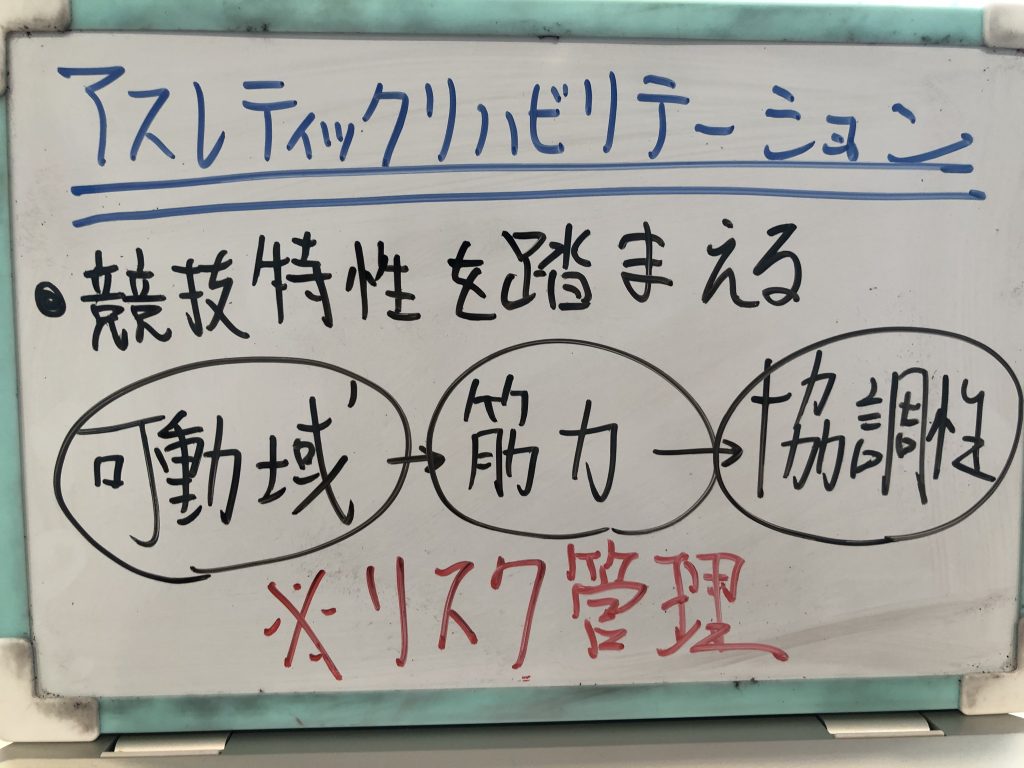 アスレティックリハビリテーション
•競技特性を踏まえる
可動域→筋力→協調性
※リスク管理